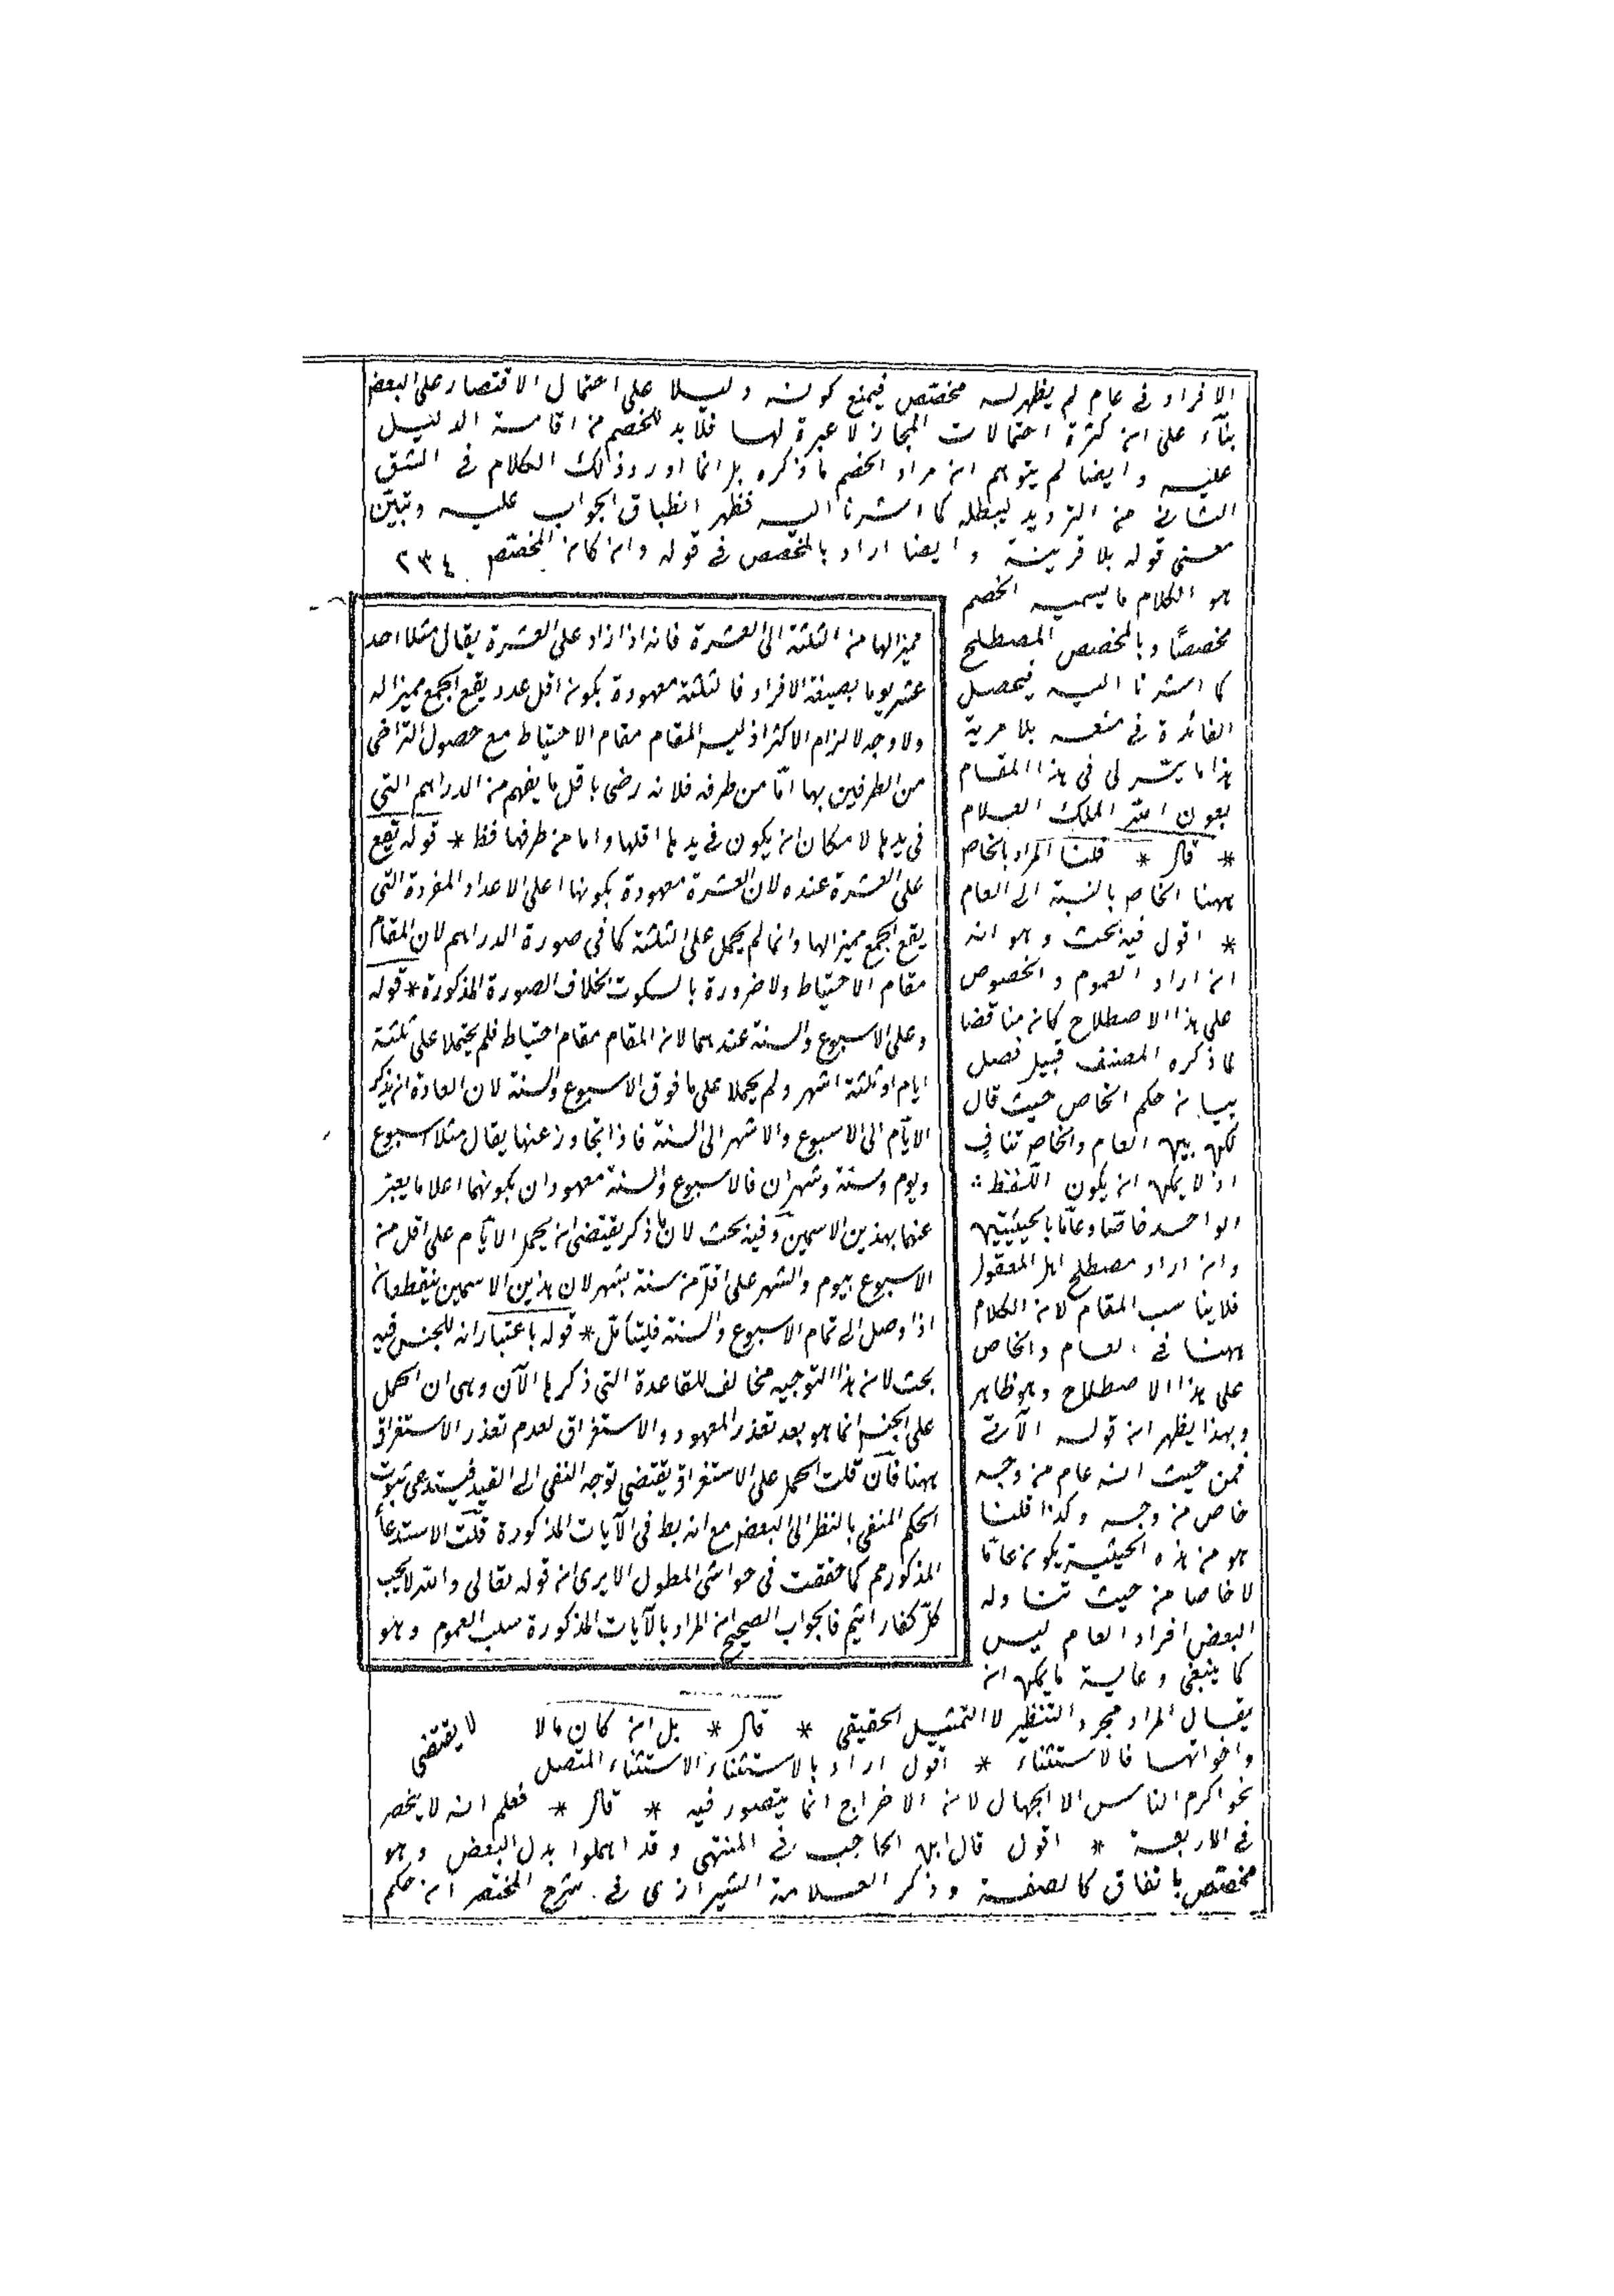 الافراد فى عام لم يظهر له مخصص فيمنع كونه دليلا على احتمال الاقتصار على البعض
بنآء على ان كثرة احتمالات المجاز لا عبرة لها فلا بد للخصم من اقامة الدليل
عليه وايضا لم يتوهم ان مراد الخصم ما ذكره بل انما اورد ذلك الكلام فى الشق
الثانى من الترديد ليبطله كما اشرنا اليه فظهر انطباق الجواب عليه وتبيّن
معنى قوله بلا قرينة وايضا اراد بالمخصص فى قوله وان كان المخصص ٢٣٤
هو الكلام ما يسميه الخصم
مخصصًا وبالمخصص المصطلح
كما اشرنا اليه فيحصل
الفائدة فى منعه بلا مرية
هذا ما يتسر لى فى هذا المقام
بعون الله الملك العلام
* قال * قلنا المراد بالخاص
ههنا الخاص بالنسبة الى العام
* اقول فيه بحث وهو انه
ان اراد العموم والخصوص
على هذا الاصطلاح كان مناقضا
لما ذكره المصنف قبيل فصل
بيان حكم الخاص حيث قال
لكن بين العام والخاص تنافٍ
اذ لا يمكن ان يكون اللفظ
الواحد خاصّا وعامّا بالحيثيتين
وان اراد مصطلح اهل المعقول
فلا يناسب المقام لان الكلام
ههنا فى العام والخاص
على هذا الاصطلاح وهو ظاهر
وبهذا يظهر ان قوله الآتى
فمن حيث انه عام من وجه
خاص من وجه وكذا قلنا
هو من هذه الحيثية يكون عامّا
لا خاصا من حيث تناوله
البعض افراد العام ليس
كما ينبغى وعاية ما يمكن ان
يقال المراد مجرد التنظير لا التمثيل الحقيقى * قال * بل ان كان مالا
واخواتها فالاستثناء * اقول اراد بالاستثناء الاستثناء المتصل
نحو اكرم الناس الا الجهال لان الاخراج انما يتصور فيه * قال * فعلم انه لا ينحصر
فى الاربعة * اقول قال ابن الحاجب فى المنتهى وقد اهملوا بدل البعض وهو
مخصص باتفاق كالصفة وذكر العلامة الشيرازى فى شرح المختصر ان حكم
مميزا لها من الثلثة الى العشرة فانه اذا زاد على العشرة يقال مثلا احد
عشر يوما بصيغة الافراد فالثلثة معهودة بكونه اقل عدد يقع الجمع مميزا له
ولا وجه لالزام الاكثر اذ ليس المقام مقام الاحتياط مع حصول التراضى
من الطرفين بها امّا من طرفه فلانه رضى باقل ما يفهم من الدراهم التى
فى يدها لامكان ان يكون فى يدها اقلها واما من طرفها فظ * قوله تقع
على العشرة عنده لان العشرة معهودة بكونها اعلى الاعداد المفردة التى
يقع الجمع مميزا لها وانما لم يحمل على الثلثة كما فى صورة الدراهم لان المقام
مقام الاحتياط ولا ضرورة بالسكوت بخلاف الصورة المذكورة * قوله
وعلى الاسبوع والسنة عندهما لان المقام مقام احتياط فلم يحملا على ثلثة
ايام او ثلثة اشهر ولم يحملا على ما فوق الاسبوع والسنة لان العادة ان يذكر
الايّام الى الاسبوع والاشهر الى السنة فاذا تجاوز عنها يقال مثلا اسبوع
ويوم وسنة وشهران فالاسبوع والسنة معهودان بكونهما اعلا ما يعبر
عنهما بهذين الاسمين وفيه بحث لان ما ذكر يقتضى ان يحمل الايّام على اقل من
الاسبوع بيوم والشهر على اقلّ من سنة بشهر لان هذين الاسمين ينقطعان
اذا وصل الى تمام الاسبوع والسنة فليتأمّل * قوله باعتبار انه للجنس فيه
بحث لان هذا التوجيه مخالف للقاعدة التى ذكرها الآن وهى ان الحمل
على الجنس انما هو بعد تعذر المعهود والاستغراق لعدم تعذر الاستغراق
ههنا فآن قلت الحمل على الاستغراق يقتضى توجه النفى الى القيد فيستدعى ثبوت
الحكم المنفى بالنظر الى البعض مع انه بط فى الآيات المذكورة قلت الاستدعآ
المذكور مم كما حققت فى حواشى المطول الا يرى ان قوله تعالى والله لا يحب
كلّ كفار اثيم فالجواب الصحيح ان المراد بالآيات المذكورة سلب العموم وهو
لا يقتضى